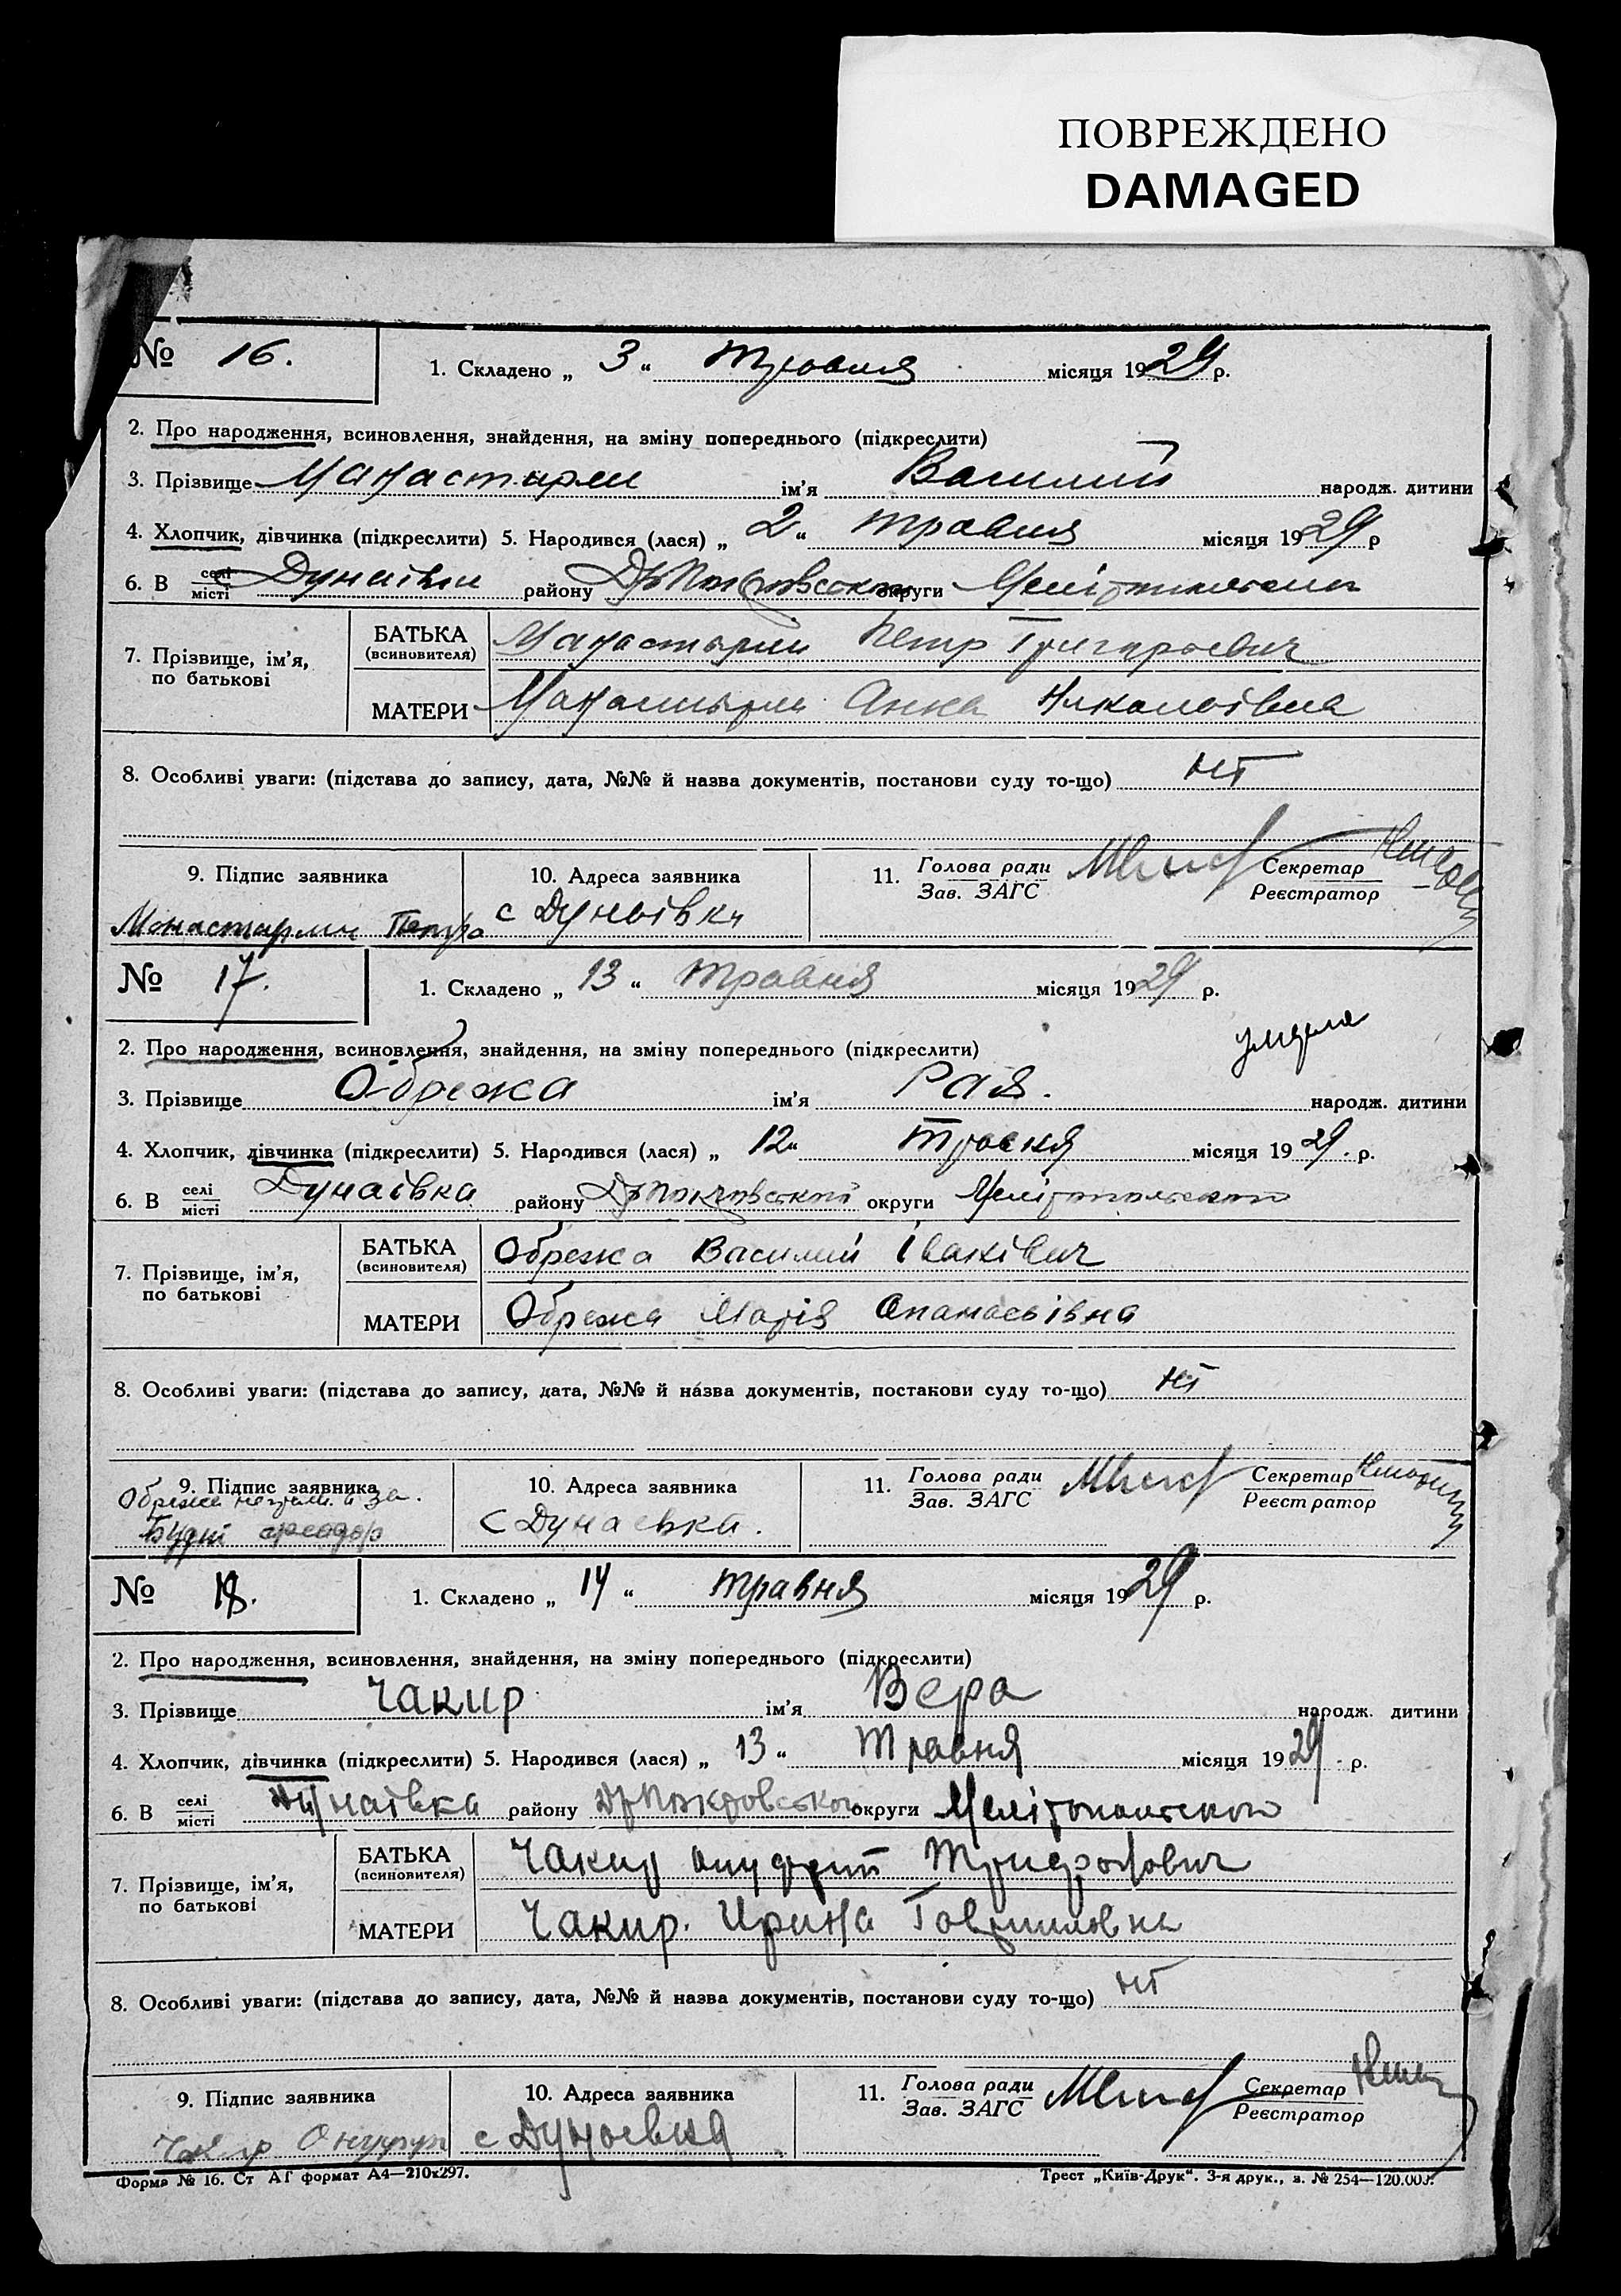 ПОВРЕЖДЕНО
DAMAGED
№ 16. 1. Складено „ 3 “ травня місяця 1929 р.
2. Про народження, всиновлення, знайдення, на зміну попереднього (підкреслити)
3. Прізвище Манастирли ім’я Василий народж. дитини
4. Хлопчик, дівчинка (підкреслити) 5. Народився (лася) „ 2 “ травня місяця 1929 р
6. В селі місті Дунаївки району округи
7. Прізвище, ім’я, по батькові
БАТЬКА (всиновителя) Манастырли Петр Григорьевич
МАТЕРИ Манастырли Анна Николаївна
8. Особливі уваги: (підстава до запису, дата, №№ й назва документів, постанови суду то-що) нт
9. Підпис заявника 10. Адреса заявника 11. Голова ради Зав. ЗАГС Секретар Реєстратор
Монастырли Петро с Дунаівки
№ 17. 1. Складено „ 13 “ травня місяця 1929 р.
умерла
2. Про народження, всиновлення, знайдення, на зміну попереднього (підкреслити)
3. Прізвище Обрежа ім’я Рая. народж. дитини
4. Хлопчик, дівчинка (підкреслити) 5. Народився (лася) „ 12 “ травня місяця 1929. р.
6. В селі місті Дунаівка району округи
7. Прізвище, ім’я, по батькові
БАТЬКА (всиновителя) Обрежа Василий Іванівич
МАТЕРИ Обрежа Марія Опанасьівна
8. Особливі уваги: (підстава до запису, дата, №№ й назва документів, постакови суду то-що) нт
9. Підпис заявника 10. Адреса заявника 11. Голова ради Зав. ЗАГС Секретар Реєстратор
Обрежа за.
с Дунаевка.
№ 18. 1. Складено „ 14 “ травня місяця 1929 р.
2. Про народження, всиновлення, знайдення, на зміну попереднього (підкреслити)
3. Прізвище Чакир ім’я Вера народж. дитини
4. Хлопчик, дівчинка (підкреслити) 5. Народився (лася) „ 13 “ Травня місяця 1929 р.
6. В селі місті Дунаівка району Др Покровського округи Мелітопольского
7. Прізвище, ім’я, по батькові
БАТЬКА (всиновителя) Чакир Трифонович
МАТЕРИ Чакир. Ирина Говриловна
8. Особливі уваги: (підстава до запису, дата, №№ й назва документів, постанови суду то-що) нт
9. Підпис заявника 10. Адреса заявника 11. Голова ради Зав. ЗАГС Секретар Реєстратор
Чакир с Дунаевка
Форма № 16. Ст АГ формат А4—210x297. Трест „Київ-Друк“. 3-я друк., з. № 254—120.000.